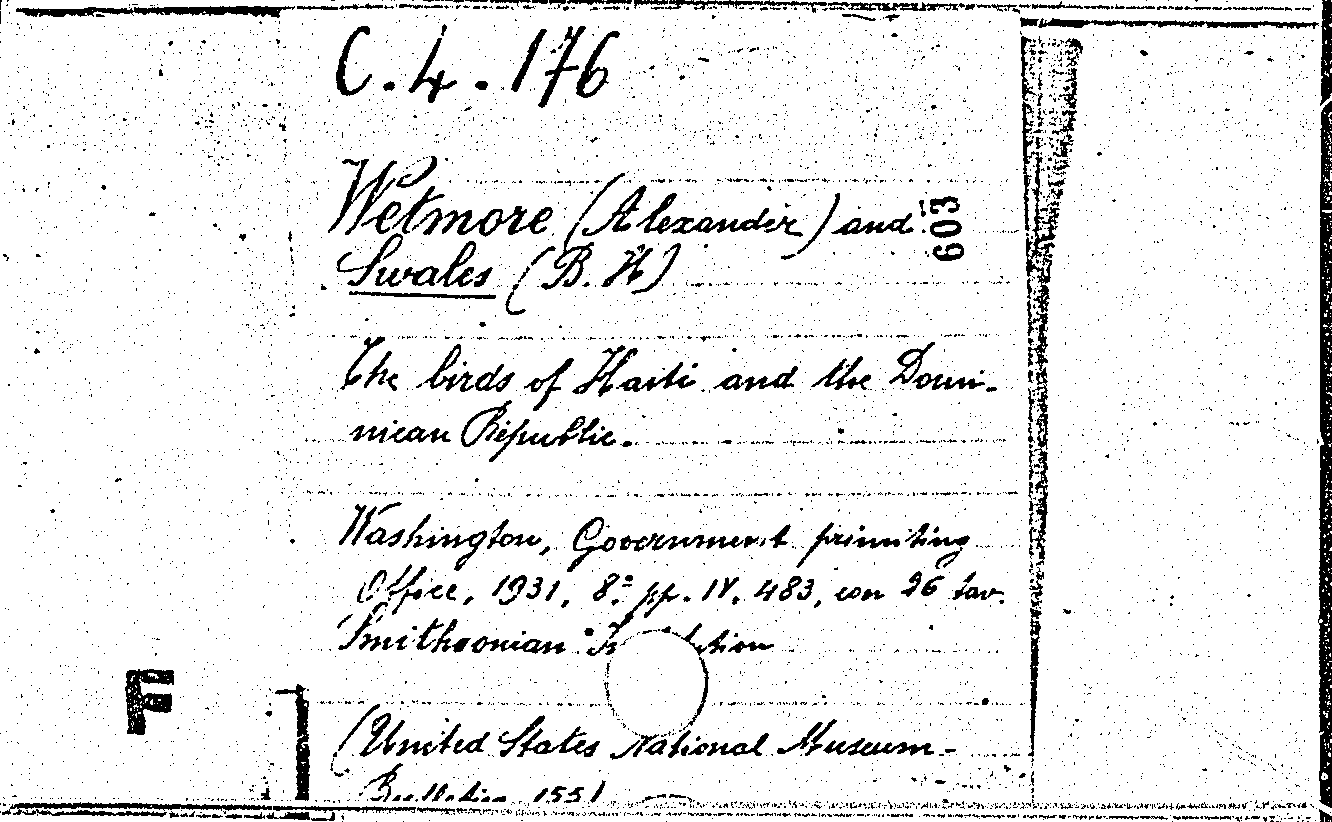 C. 4. 176
Wetmore (Alexander) and
603
Swales (B. H)
The birds of Haiti and the Domi-
nican Republic.
Washington, Government printing
Office, 1931, 8º pp. IV. 483, con 26 tav.
Smithsonian
(United States National Museum -
155)
F